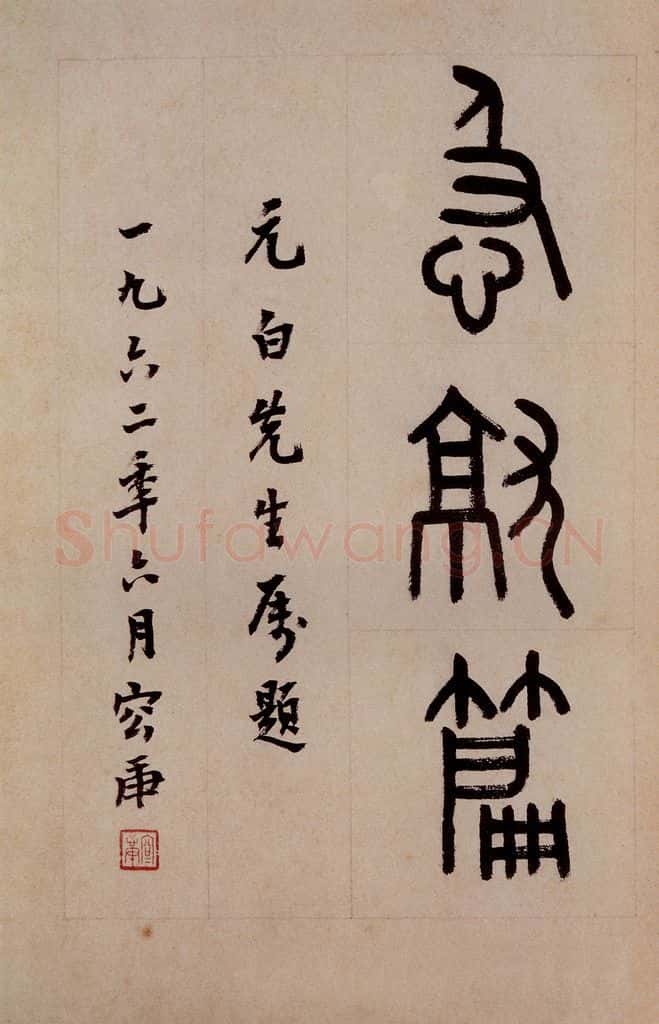 急就篇
元白先生属题
一九六二年六月容庚
容庚
Shufawang.CN